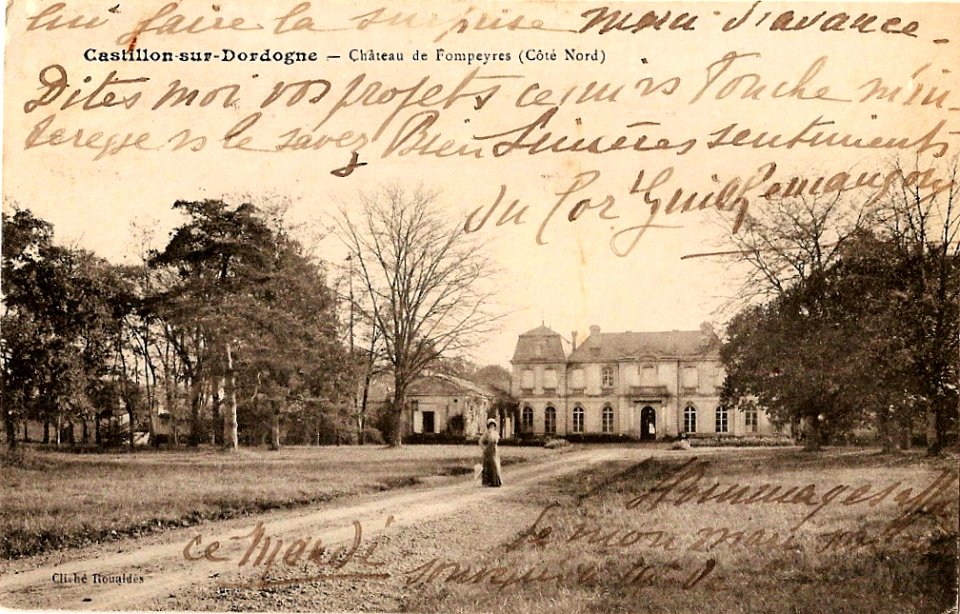 lui faire la surprise merci d'avance
Castillon-sur-Dordogne — Château de Fompeyres (Côté Nord)
Dites moi vos projets ce qui vs touche m'in-
teresse vs le savez Bien Sincères sentiments
du Cor
Hommages aff
de mon mari
ce Mardi
Cliché Roualdès